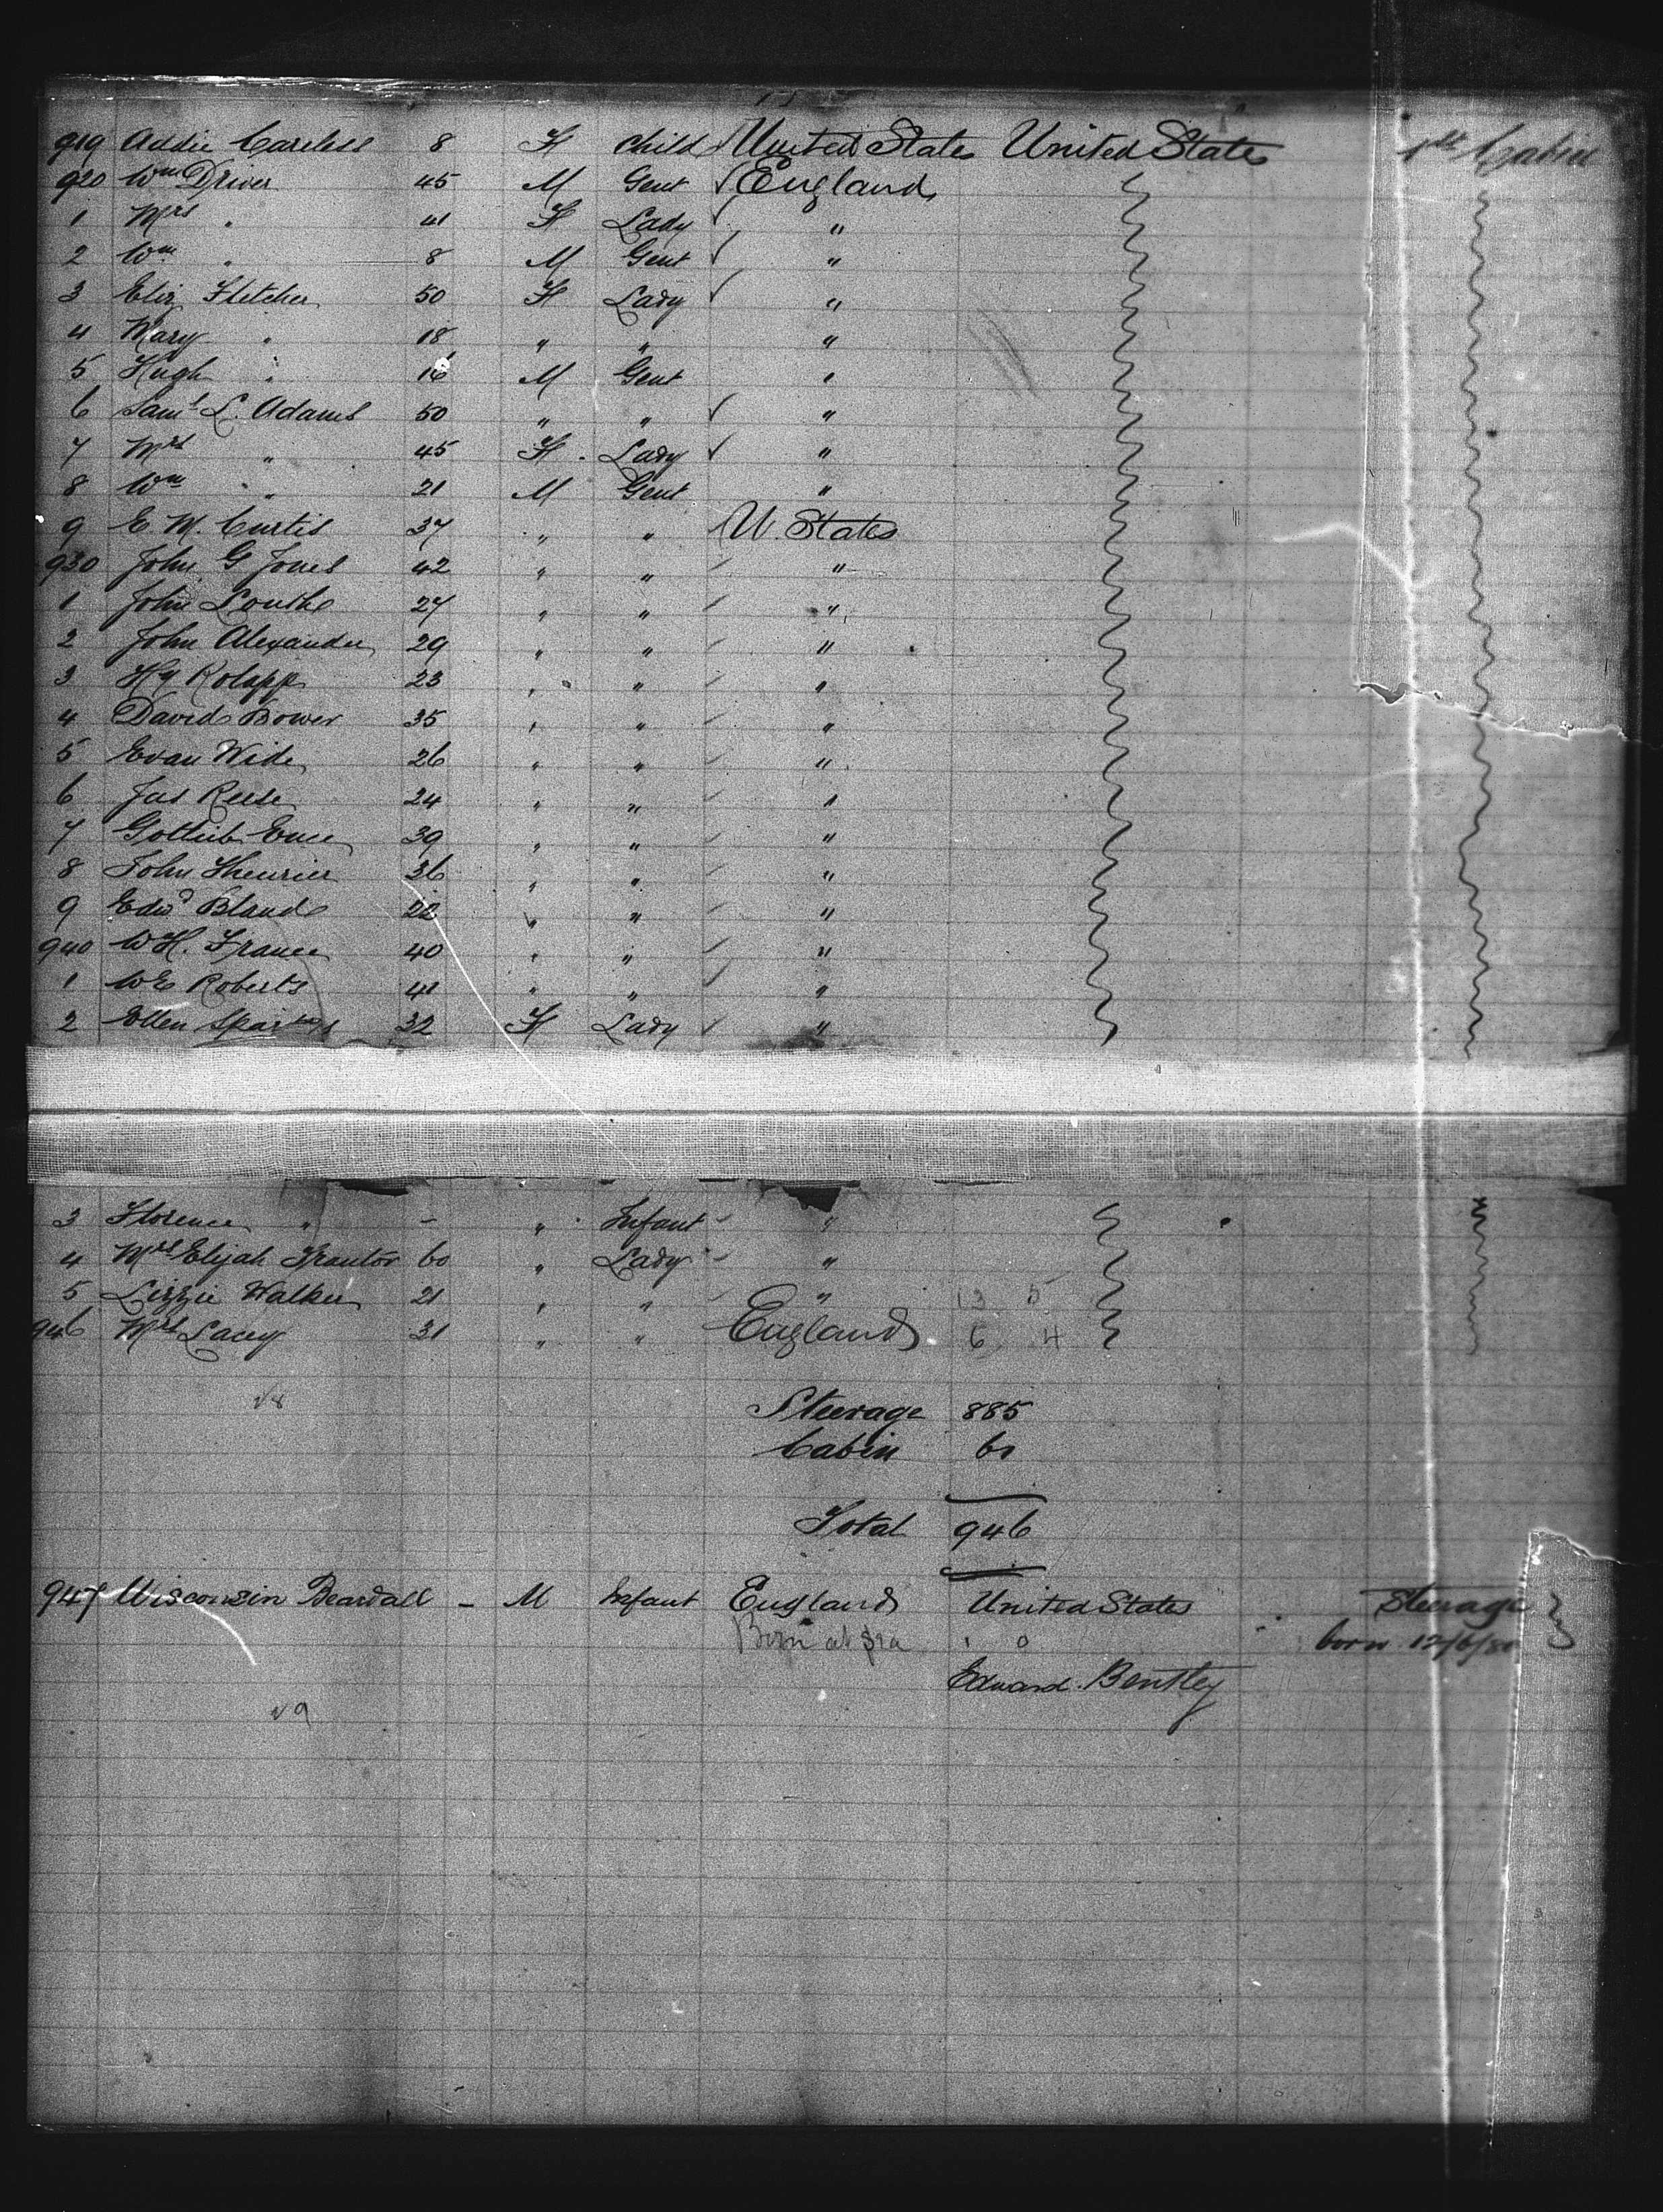 919 Addie Careless 8 F Child United States United States 1st Cabin
920 Wm Driver 45 M Gent England
1 Mrs " 41 F Lady "
2 Wm " 8 M Gent "
3 Eliz Fletcher 50 F Lady "
4 Mary " 18 " " "
5 Hugh " 16 M Gent "
6 Saml L. Adams 50 " " "
7 Mrs " 45 F Lady "
8 Wm " 21 M Gent "
9 E. W. Curtis 37 " " U. States
930 John G Jones 42 " " "
1 John 27 " " "
2 John Alexander 29 " " "
3 Hy Rolapp 23 " " "
4 David Bower 35 " " "
5 Evan Wide 26 " " "
6 Jas Reese 24 " " "
7 Gottlieb Ence 39 " " "
8 John Theurier 36 " " "
9 Edwd Bland 22 " " "
940 W H. France 40 " " "
1 W E Roberts 41 " " "
2 Ellen 32 F Lady "
3 Florence " - " Infant "
4 Mrs Elijah 60 " Lady "
5 Lizzie Walker 21 " " " 13 5
946 Mrs Lacey 31 " " England 6 4
Steerage 885
Cabin 61
Total 946
947 Wisconsin Beardall - M Infant England United States Steerage
Born at Sea born 12/6/80
Edward Bentley